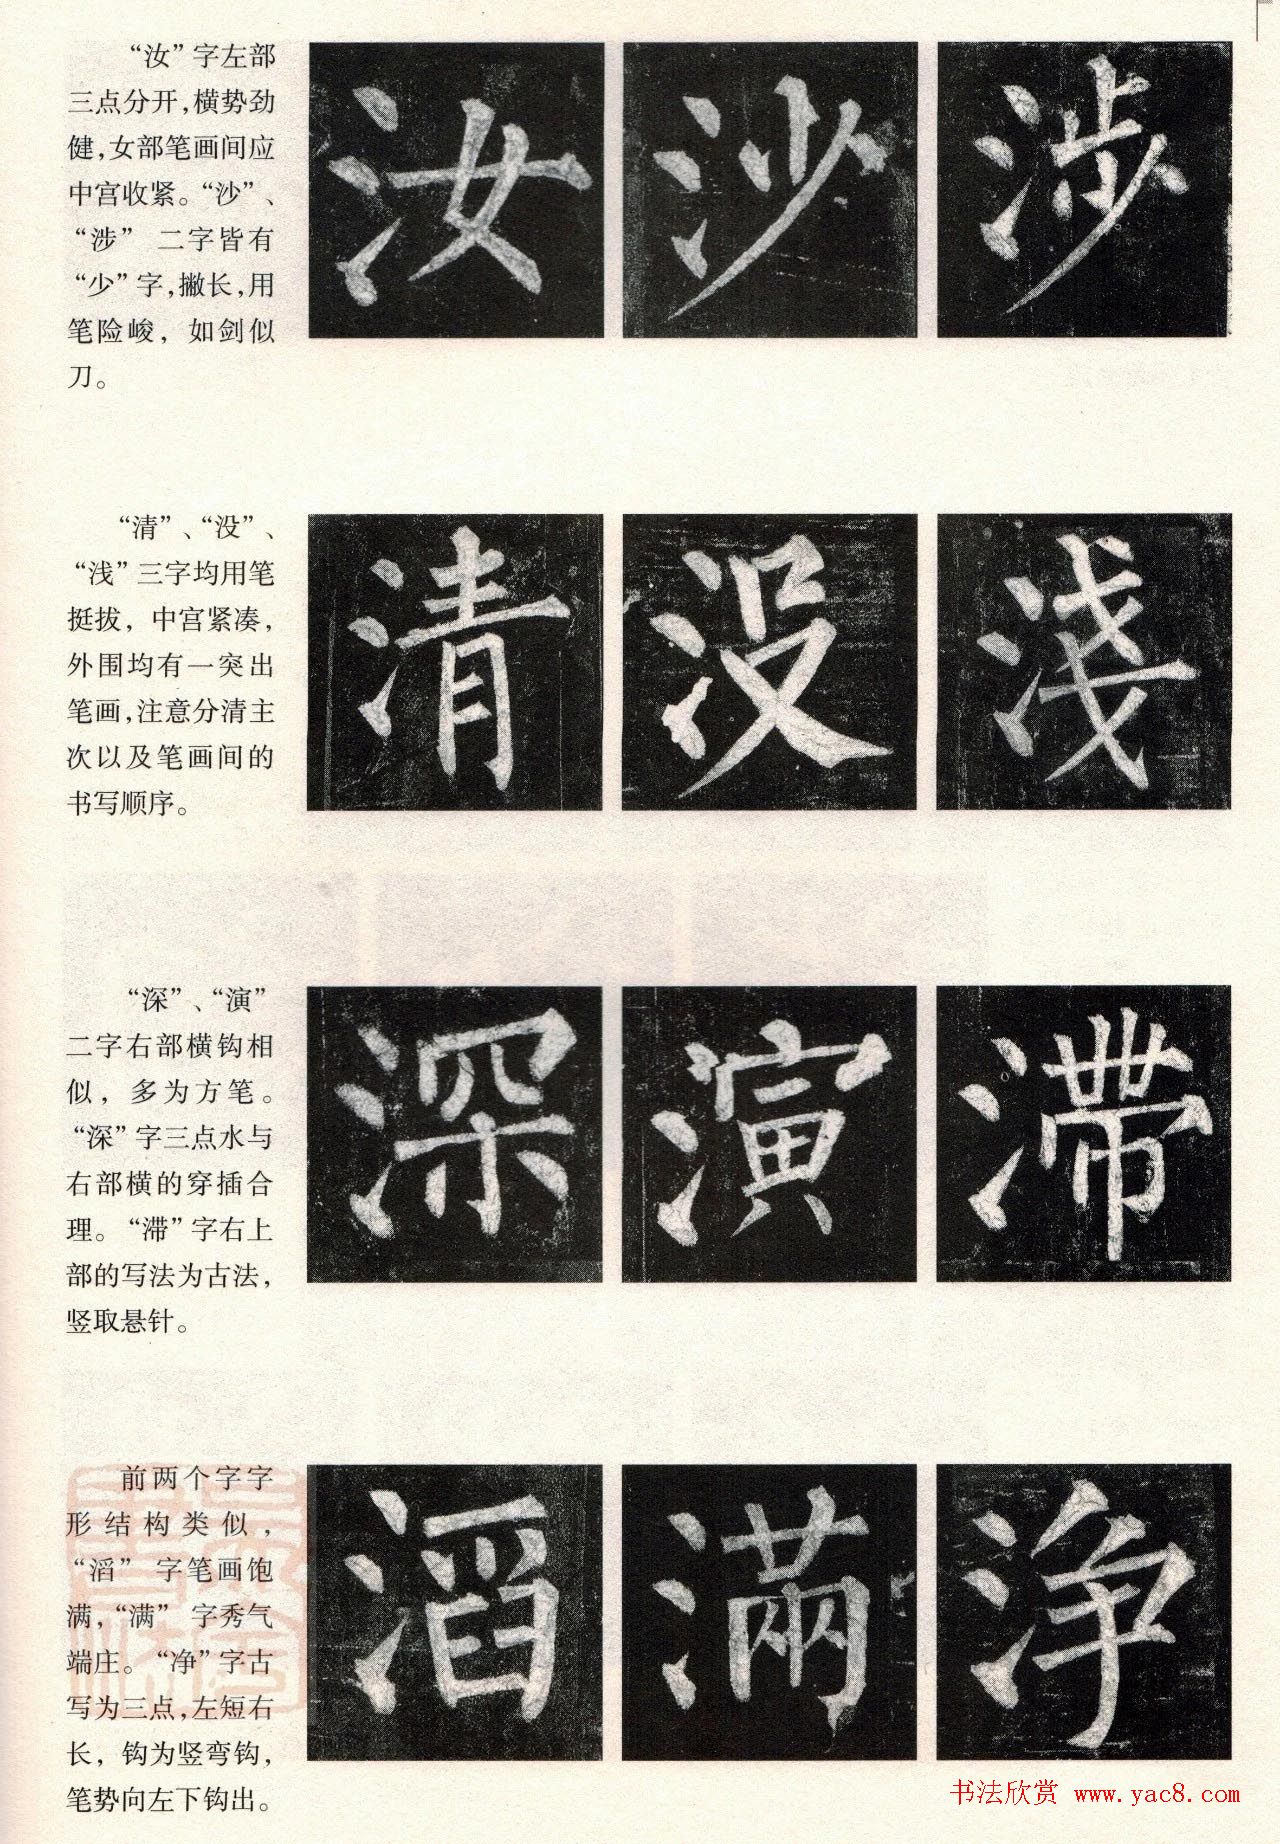 “汝”字左部
三点分开,横势劲
健,女部笔画间应
中宫收紧。“沙”、
“涉” 二字皆有
“少”字,撇长,用
笔险峻, 如剑似
刀。
汝 沙 涉
“清”、“没”、
“浅”三字均用笔
挺拔, 中宫紧凑,
外围均有一突出
笔画,注意分清主
次以及笔画间的
书写顺序。
清 没 淺
“深”、“演”
二字右部横钩相
似, 多为方笔。
“深”字三点水与
右部横的穿插合
理。“滞”字右上
部的写法为古法,
竖取悬针。
深 演 滯
前两个字字
形结构类似,
“滔” 字笔画饱
满,“满” 字秀气
端庄。“净”字古
写为三点,左短右
长, 钩为竖弯钩,
笔势向左下钩出。
滔 滿 淨
书法欣赏 www.yac8.com